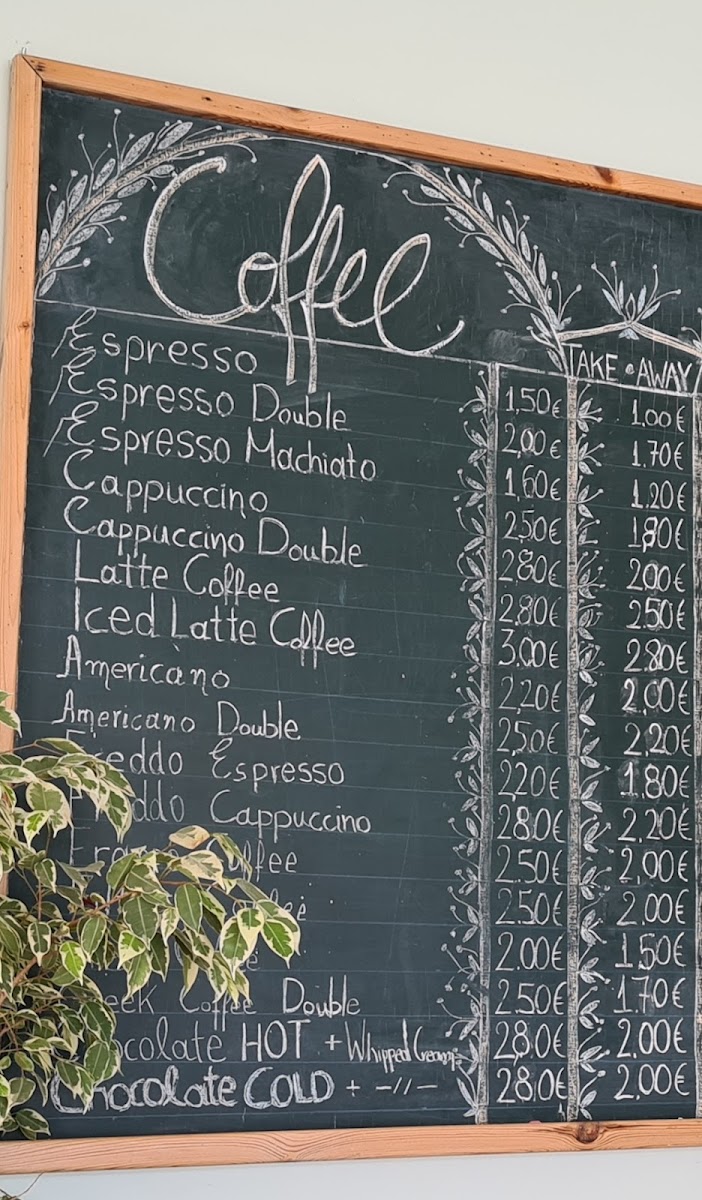 Coffee
TAKE AWAY
Espresso 1,50€ 1.00€
Espresso Double 2,00€ 1.70€
Espresso Machiato 1,60€ 1.20€
Cappuccino 2,50€ 1.80€
Cappuccino Double 2.80€ 2.00€
Latte Coffee 2,80€ 2.50€
Iced Latte Coffee 3.00€ 2.80€
Americano 2,20€ 2.00€
Americano Double 2,50€ 2,20€
Freddo Espresso 2,20€ 1.80€
Freddo Cappuccino 2.80€ 2,20€
2.50€ 2,00€
2.50€ 2.00€
2.00€ 1.50€
Coffee Double 2.50€ 1.70€
Chocolate HOT + Whipped Cream 2,80€ 2.00€
Chocolate COLD + -//- 2.80€ 2,00€